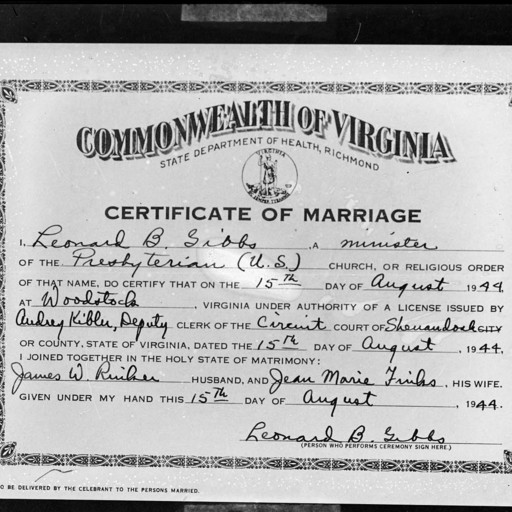 COMMONWEALTH OF VIRGINIA
STATE DEPARTMENT OF HEALTH, RICHMOND
VIRGINIA
CERTIFICATE OF MARRIAGE
I, Leonard B. Gibbs, A minister
OF THE Presbyterian (U.S.) CHURCH, OR RELIGIOUS ORDER
OF THAT NAME, DO CERTIFY THAT ON THE 15th DAY OF August 1944,
AT Woodstock, VIRGINIA UNDER AUTHORITY OF A LICENSE ISSUED BY
Audrey Kibler, Deputy CLERK OF THE Circuit COURT OF Shenandoah CITY
OR COUNTY, STATE OF VIRGINIA, DATED THE 15th DAY OF August, 1944,
I JOINED TOGETHER IN THE HOLY STATE OF MATRIMONY:
James W. Rinker HUSBAND, AND Jean Marie Finks, HIS WIFE.
GIVEN UNDER MY HAND THIS 15th DAY OF August, 1944.
Leonard B. Gibbs
(PERSON WHO PERFORMS CEREMONY SIGN HERE.)
TO BE DELIVERED BY THE CELEBRANT TO THE PERSONS MARRIED.